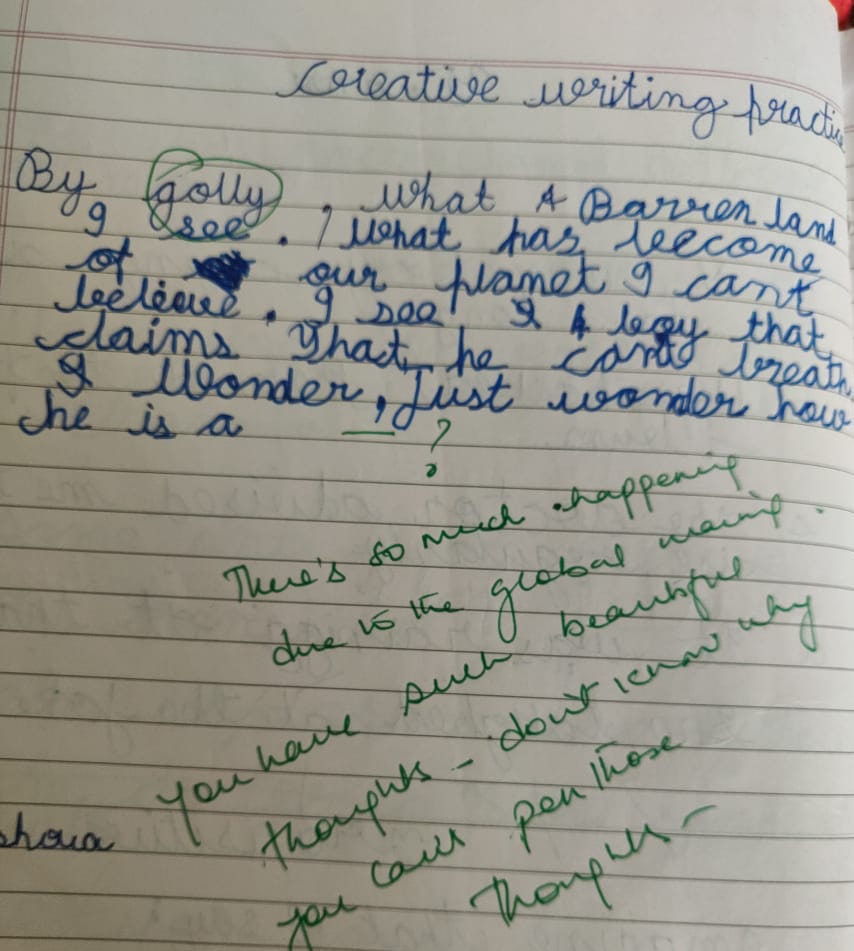 Creative writing practice
By golly, what A Barren land
I see. What has become
of our planet I cant
believe. I see A boy that
claims that he cant breath.
I Wonder, just wonder how
he is a ?
There's so much happening
due to the global
You have such beautiful
thoughts - don't know why
you can't pen those
thoughts -